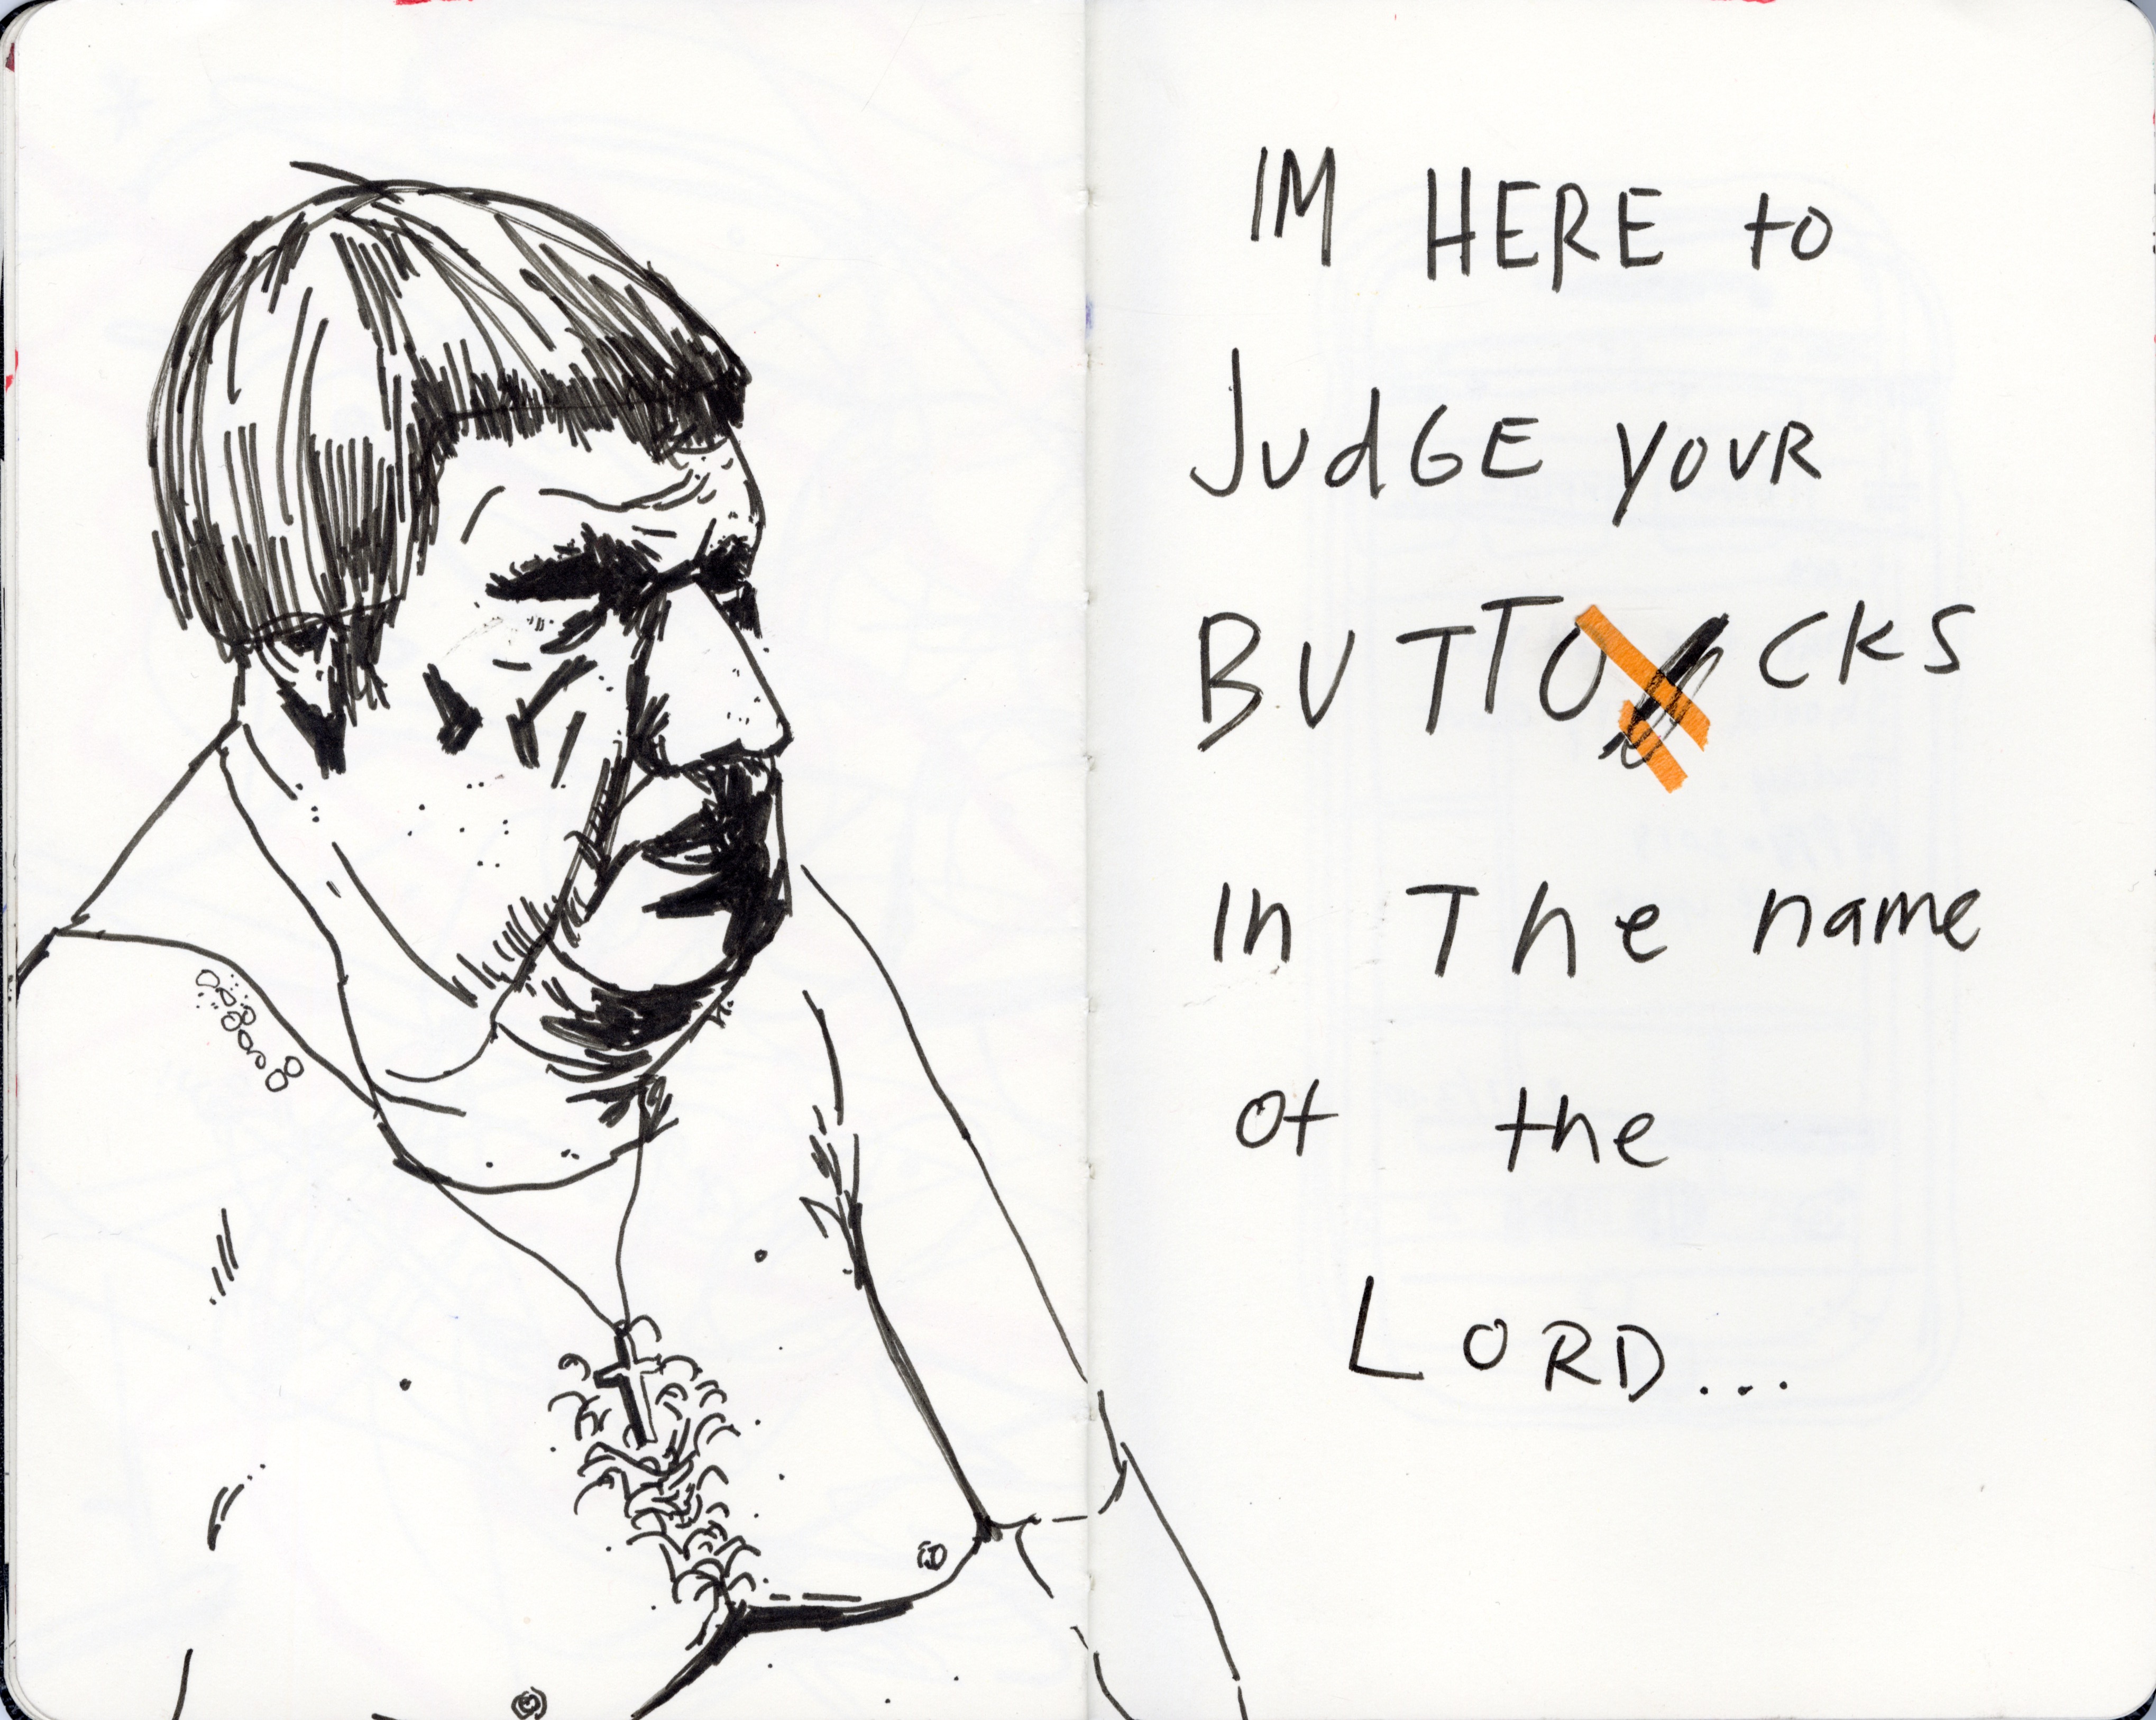 IM HERE to
JudGE YOUR
BUTTOCKS
in The name
of the
LORD...